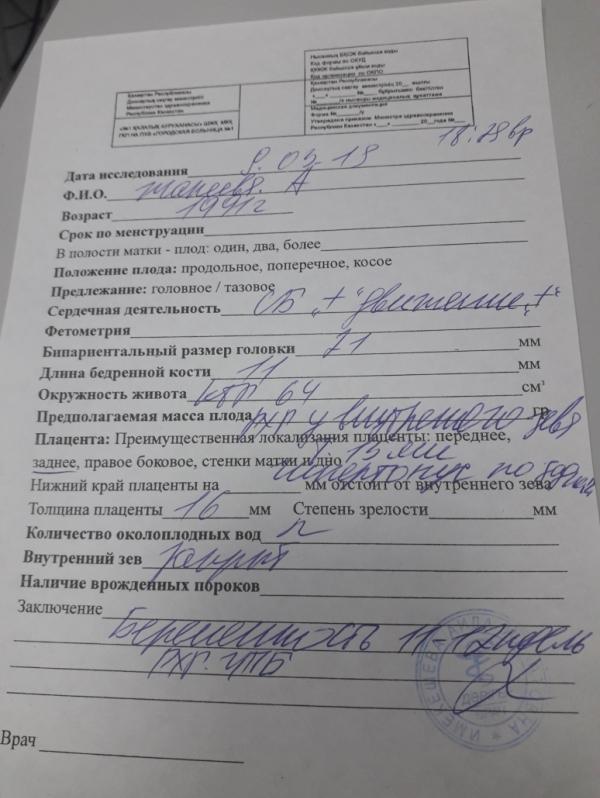 Қазақстан Республикасы
Денсаулық сақтау министрлігі
Министерство здравоохранения
Республики Казахстан
«№1 ҚАЛАЛЫҚ АУРУХАНАСЫ» ШЖҚ МКҚ
ГКП НА ПХВ «ГОРОДСКАЯ БОЛЬНИЦА №1»
Нысанның БҚСЖ бойынша коды
Код формы по ОКУД
КҰЖЖ бойынша ұйым коды
Код организации по ОКПО
Қазақстан Республикасы
Денсаулық сақтау министрінің 20__ жылғы
Медицинская документация
Форма №____/у
Утверждена приказом Министра здравоохранения
Республики Казахстан «__»____20__года №__
Дата исследования 9.03.19
Ф.И.О. А
Возраст 1991г
Срок по менструации
В полости матки - плод: один, два, более
Положение плода: продольное, поперечное, косое
Предлежание: головное / тазовое
Сердечная деятельность СБ "+" движение "+"
Фетометрия
Бипариентальный размер головки 21 мм
Длина бедренной кости 11 мм
Окружность живота КТР 64 см³
Предполагаемая масса плода РХГ у внутреннего зева гр
Плацента: Преимущественная локализация плаценты: переднее,
15 мм
заднее, правое боковое, стенки матки и дно
Гипертонус по задней
Нижний край плаценты на мм отстоит от внутреннего зева
Толщина плаценты 16 мм Степень зрелости мм
Количество околоплодных вод N
Внутренний зев закрыт
Наличие врожденных пороков
Заключение
Беременность 11-12 недель
РХГ. УПБ
Врач